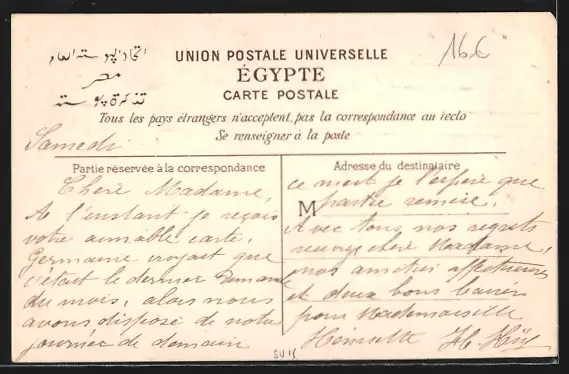 اتحاد پوسته
UNION POSTALE UNIVERSELLE
مصر
ÉGYPTE
تذكرة پوسته
CARTE POSTALE
16€
Tous les pays étrangers n'acceptent pas la correspondance au recto
Se renseigner à la poste
Samedi
Partie réservée à la correspondance
Chère Madame,
A l'instant je reçois
votre aimable carte.
Germaine croyait que
c'était le dernier Dimanche
du mois, alors nous
avons disposé de notre
journée de demain
Adresse du destinataire
ce n'est je l'espère que
M partie remise.
Avec tous nos regrets
recevez chère Madame,
nos amitiés affectueuses
et deux bons baisers
pour Mademoiselle
Henriette H.
SU 15